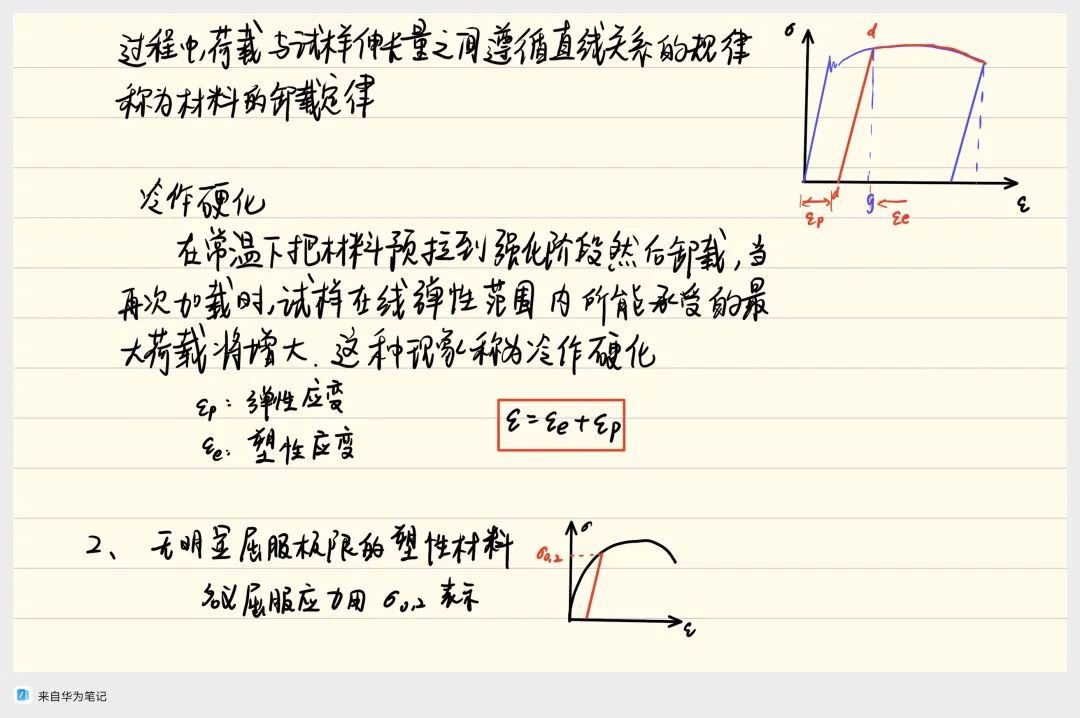 过程中,荷载与试样伸长量之间遵循直线关系的规律
称为材料的卸载定律
σ
d
d'
g
εp
εe
ε
冷作硬化
在常温下把材料预拉到强化阶段然后卸载,当
再次加载时,试样在线弹性范围内所能承受的最
大荷载将增大.这种现象称为冷作硬化
εp: 弹性应变
εe: 塑性应变
ε=εe+εp
2、无明显屈服极限的塑性材料
名义屈服应力用 σ0.2 表示
σ
σ0.2
ε
来自华为笔记